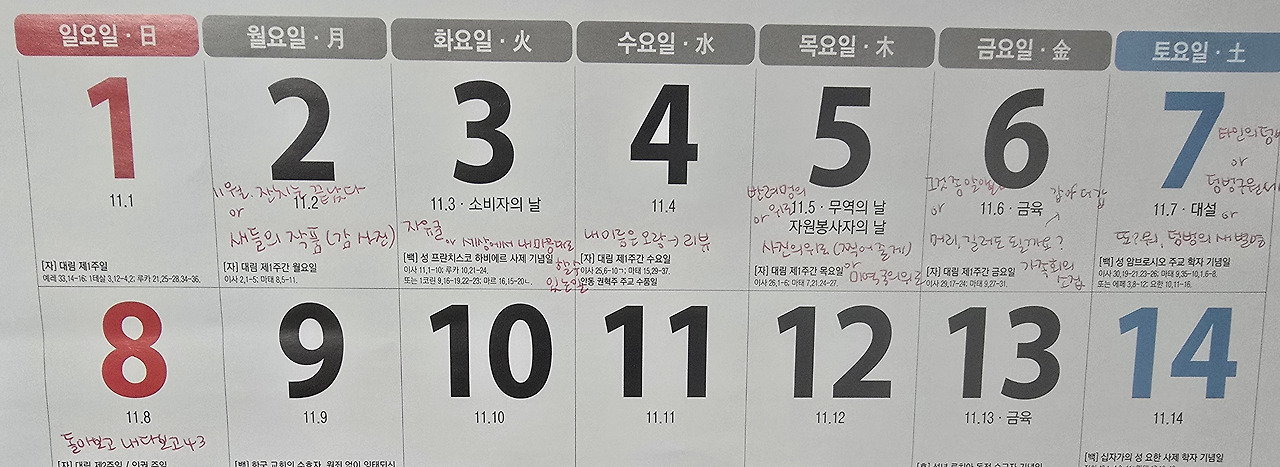 일요일 · 日
월요일 · 月
화요일 · 火
수요일 · 水
목요일 · 木
금요일 · 金
토요일 · 土
1
11.1
[자] 대림 제1주일
예레 33,14-16; 1테살 3,12-4,2; 루카 21,25-28.34-36.
2
11월, 잔치는 끝났다
11.2
or
새들의 작품 (감 사진)
[자] 대림 제1주간 월요일
이사 2,1-5; 마태 8,5-11.
3
11.3 · 소비자의 날
자유글
or 세상에서 내 마음대로
할 수
있는 일
[백] 성 프란치스코 하비에르 사제 기념일
이사 11,1-10; 루카 10,21-24.
또는 1코린 9,16-19.22-23; 마르 16,15-20.
4
11.4
내 이름은 오랑 → 리뷰
[자] 대림 제1주간 수요일
이사 25,6-10; 마태 15,29-37.
안동 권혁주 주교 수품일
5
반려명의
or 위로
11.5 · 무역의 날
자원봉사자의 날
사진의 위로 (찍어줄게)
or
미역국의 위로
[자] 대림 제1주간 목요일
이사 26,1-6; 마태 7,21.24-27.
6
11.6 · 금육
or
머리, 길러도 될까요?
가족회의
[자] 대림 제1주간 금요일
이사 29,17-24; 마태 9,27-31.
7
타인의
or
텀벙
11.7 · 대설
or
텀벙의 새 별명
[백] 성 암브로시오 주교 학자 기념일
이사 30,19-21.23-26; 마태 9,35-10,1.6-8.
또는 에페 3,8-12; 요한 10,11-16.
8
11.8
돌아보고 내다보고 43
[자] 대림 제2주일 / 인권 주일
9
11.9
[백] 한국 교회의 수호자, 원죄 없이 잉태되신
10
11.10
11
11.11
12
11.12
13
11.13 · 금육
[홍] 성녀 루치아 동정 순교자 기념일
14
11.14
[백] 십자가의 성 요한 사제 학자 기념일